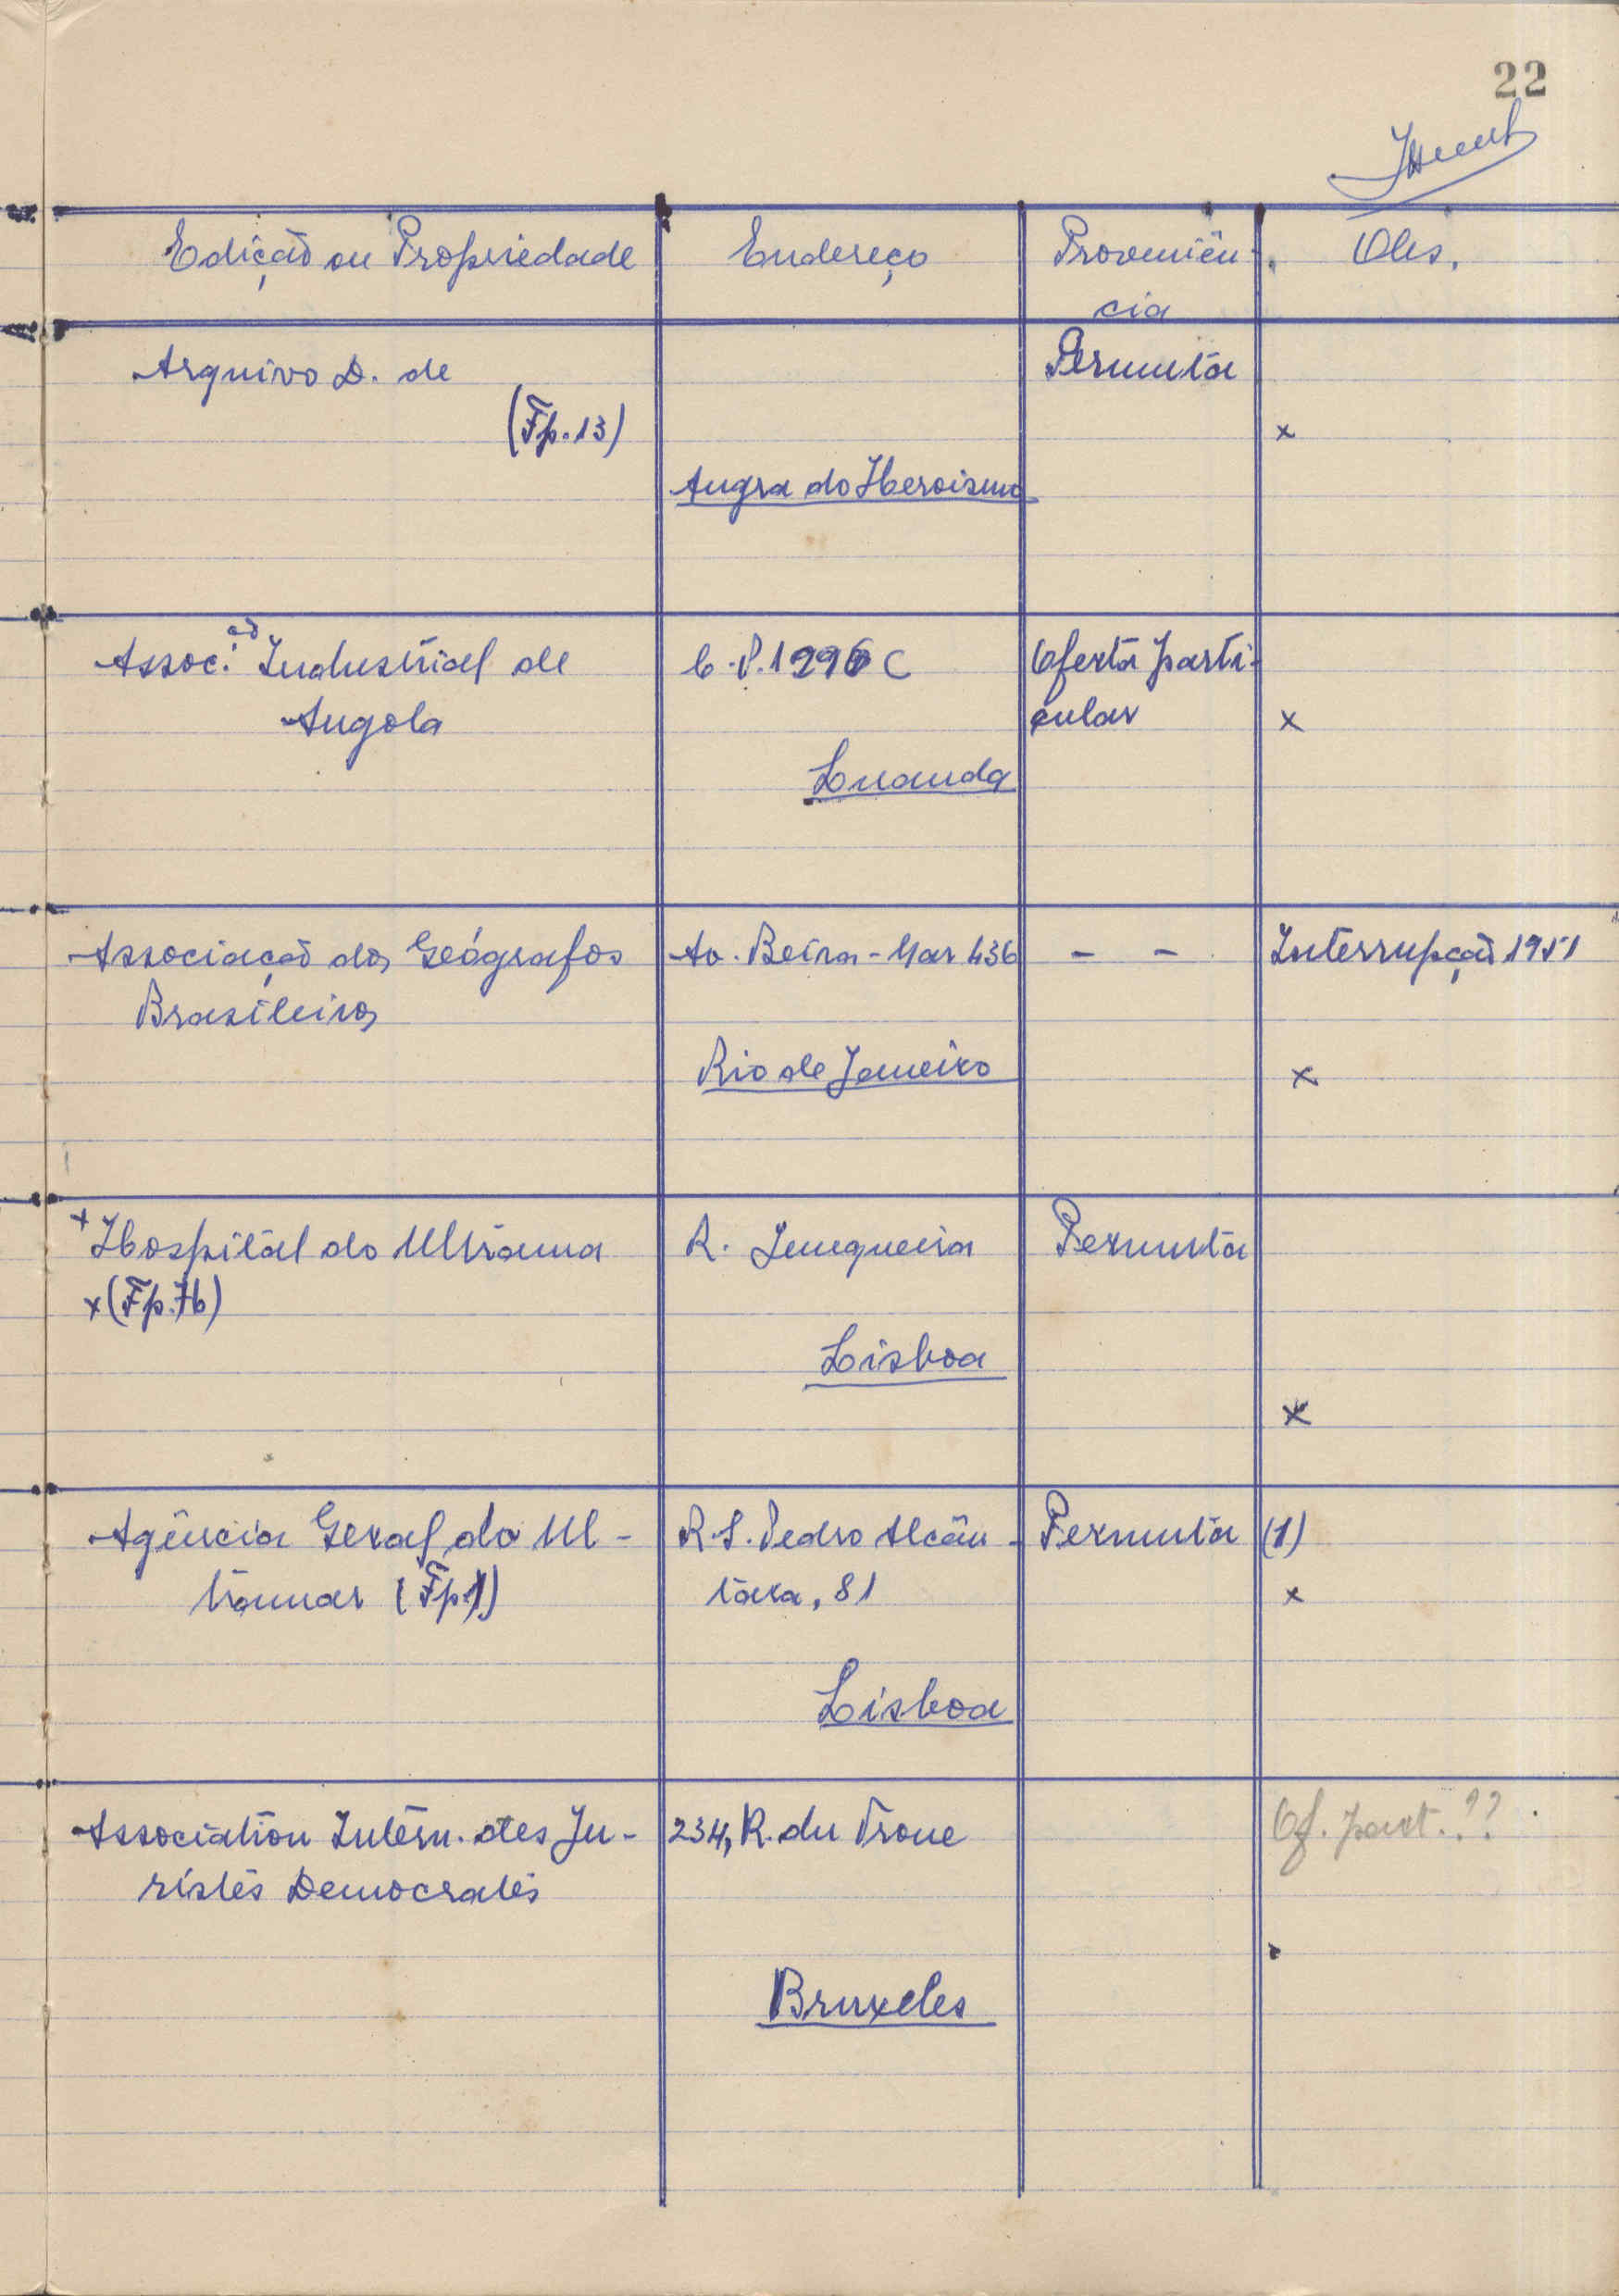 22
Edição ou Propriedade Endereço Proveniên- Obs.
cia
Arquivo D. de Permuta
(Fp. 13) x
Angra do Heroismo
Assoc.ad Industrial de C.P. 1296 C Oferta parti-
Angola cular x
Luanda
Associação dos Geógrafos Av. Beira-Mar 436 - - Interrupção 1951
Brasileiros
Rio de Janeiro x
x Hospital do Ultrama R. Junqueira Permuta
x (Fp. 76)
Lisboa
x
Agência Geral do Ul- R. S. Pedro Alcân- Permuta (1)
tramar (Fp. 1) tara, 81 x
Lisboa
Association Intern. des Ju- 234, R. du Trone Of. part. ??
ristes Democrates
Bruxeles